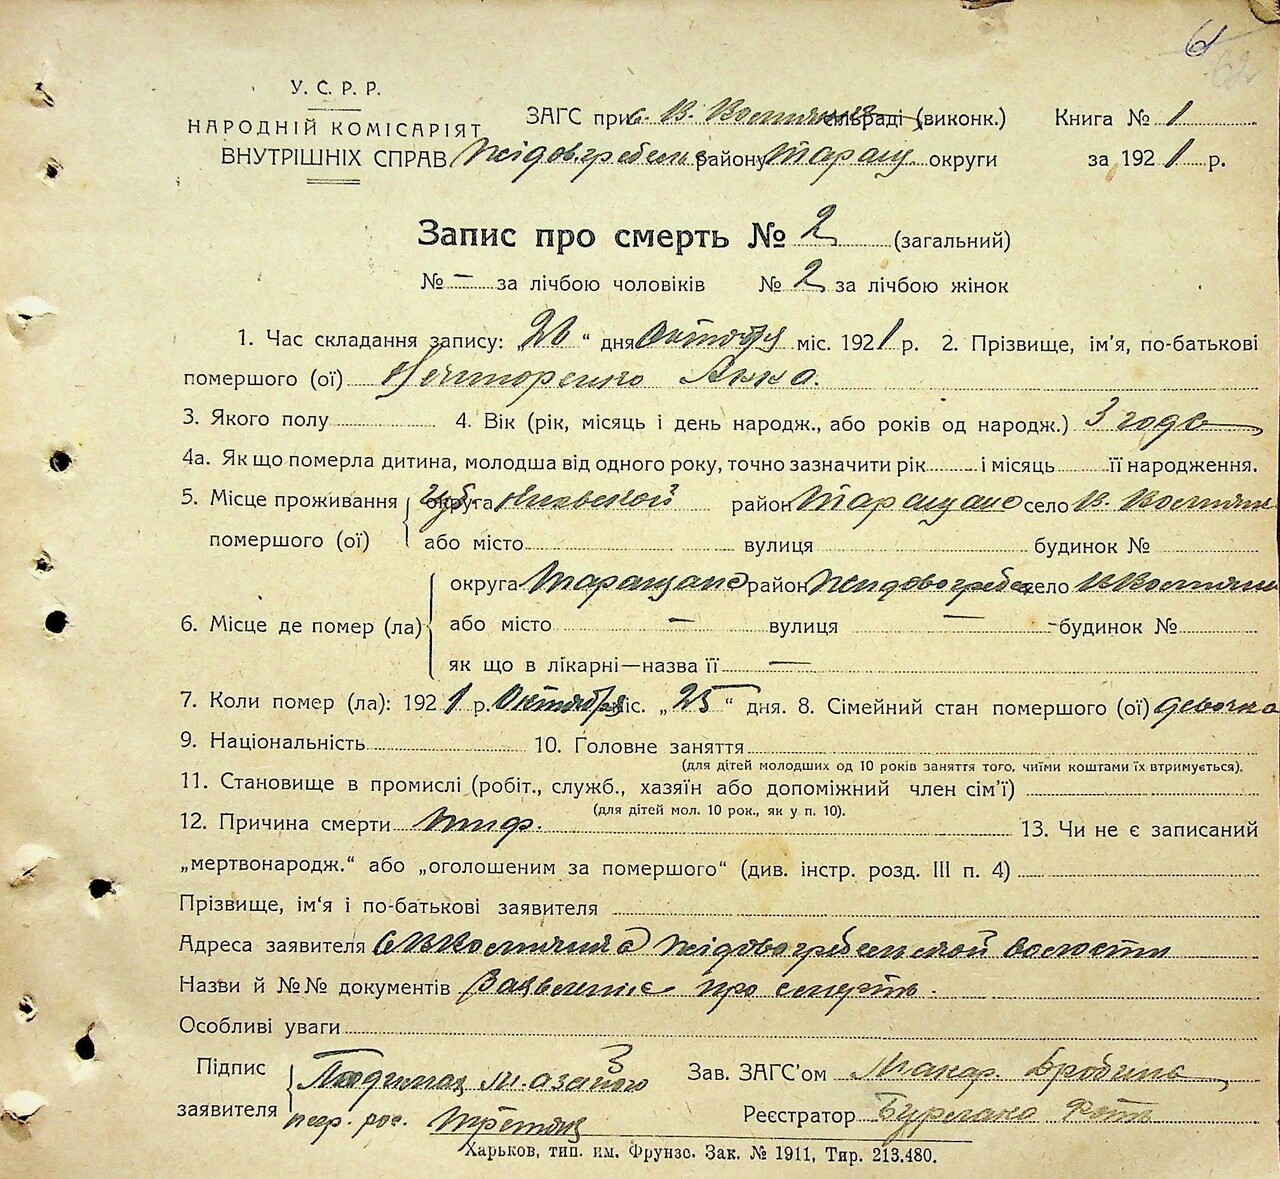 61
62
У. С. Р. Р.
НАРОДНІЙ КОМІСАРІЯТ
ВНУТРІШНІХ СПРАВ
ЗАГС при с. В. сільраді (виконк.) Книга № 1
району Таращ. округи за 1921 р.
Запис про смерть № 2 (загальний)
№ — за лічбою чоловіків № 2 за лічбою жінок
1. Час складання запису: „26“ дня Октября міс. 1921 р. 2. Прізвище, ім'я, по-батькові
помершого (ої) Нечторенко Анна.
3. Якого полу 4. Вік (рік, місяць і день народж., або років од народж.) 3 года
4а. Як що померла дитина, молодша від одного року, точно зазначити рік і місяць її народження.
5. Місце проживання округа Губ. Киевской район Таращанс село В.
помершого (ої) або місто вулиця будинок №
округа Таращанс район село
6. Місце де помер (ла) або місто — вулиця — будинок №
як що в лікарні—назва її —
7. Коли помер (ла): 1921 р. Октября міс. „25“ дня. 8. Сімейний стан помершого (ої) девочка
9. Національність 10. Головне заняття
(для дітей молодших од 10 років заняття того, чиїми коштами їх втримується).
11. Становище в промислі (робіт., служб., хазяїн або допоміжний член сім'ї)
(для дітей мол. 10 рок., як у п. 10).
12. Причина смерти тиф. 13. Чи не є записаний
„мертвонародж.“ або „оголошеним за помершого“ (див. інстр. розд. III п. 4)
Прізвище, ім'я і по-батькові заявителя
Адреса заявителя волости
Назви й №№ документів Заявление про смерть.
Особливі уваги
Підпис
заявителя
Зав. ЗАГС'ом Макар.
Реєстратор Бурлака
Харьков, тип. им. Фрунзе. Зак. № 1911, Тир. 213.480.